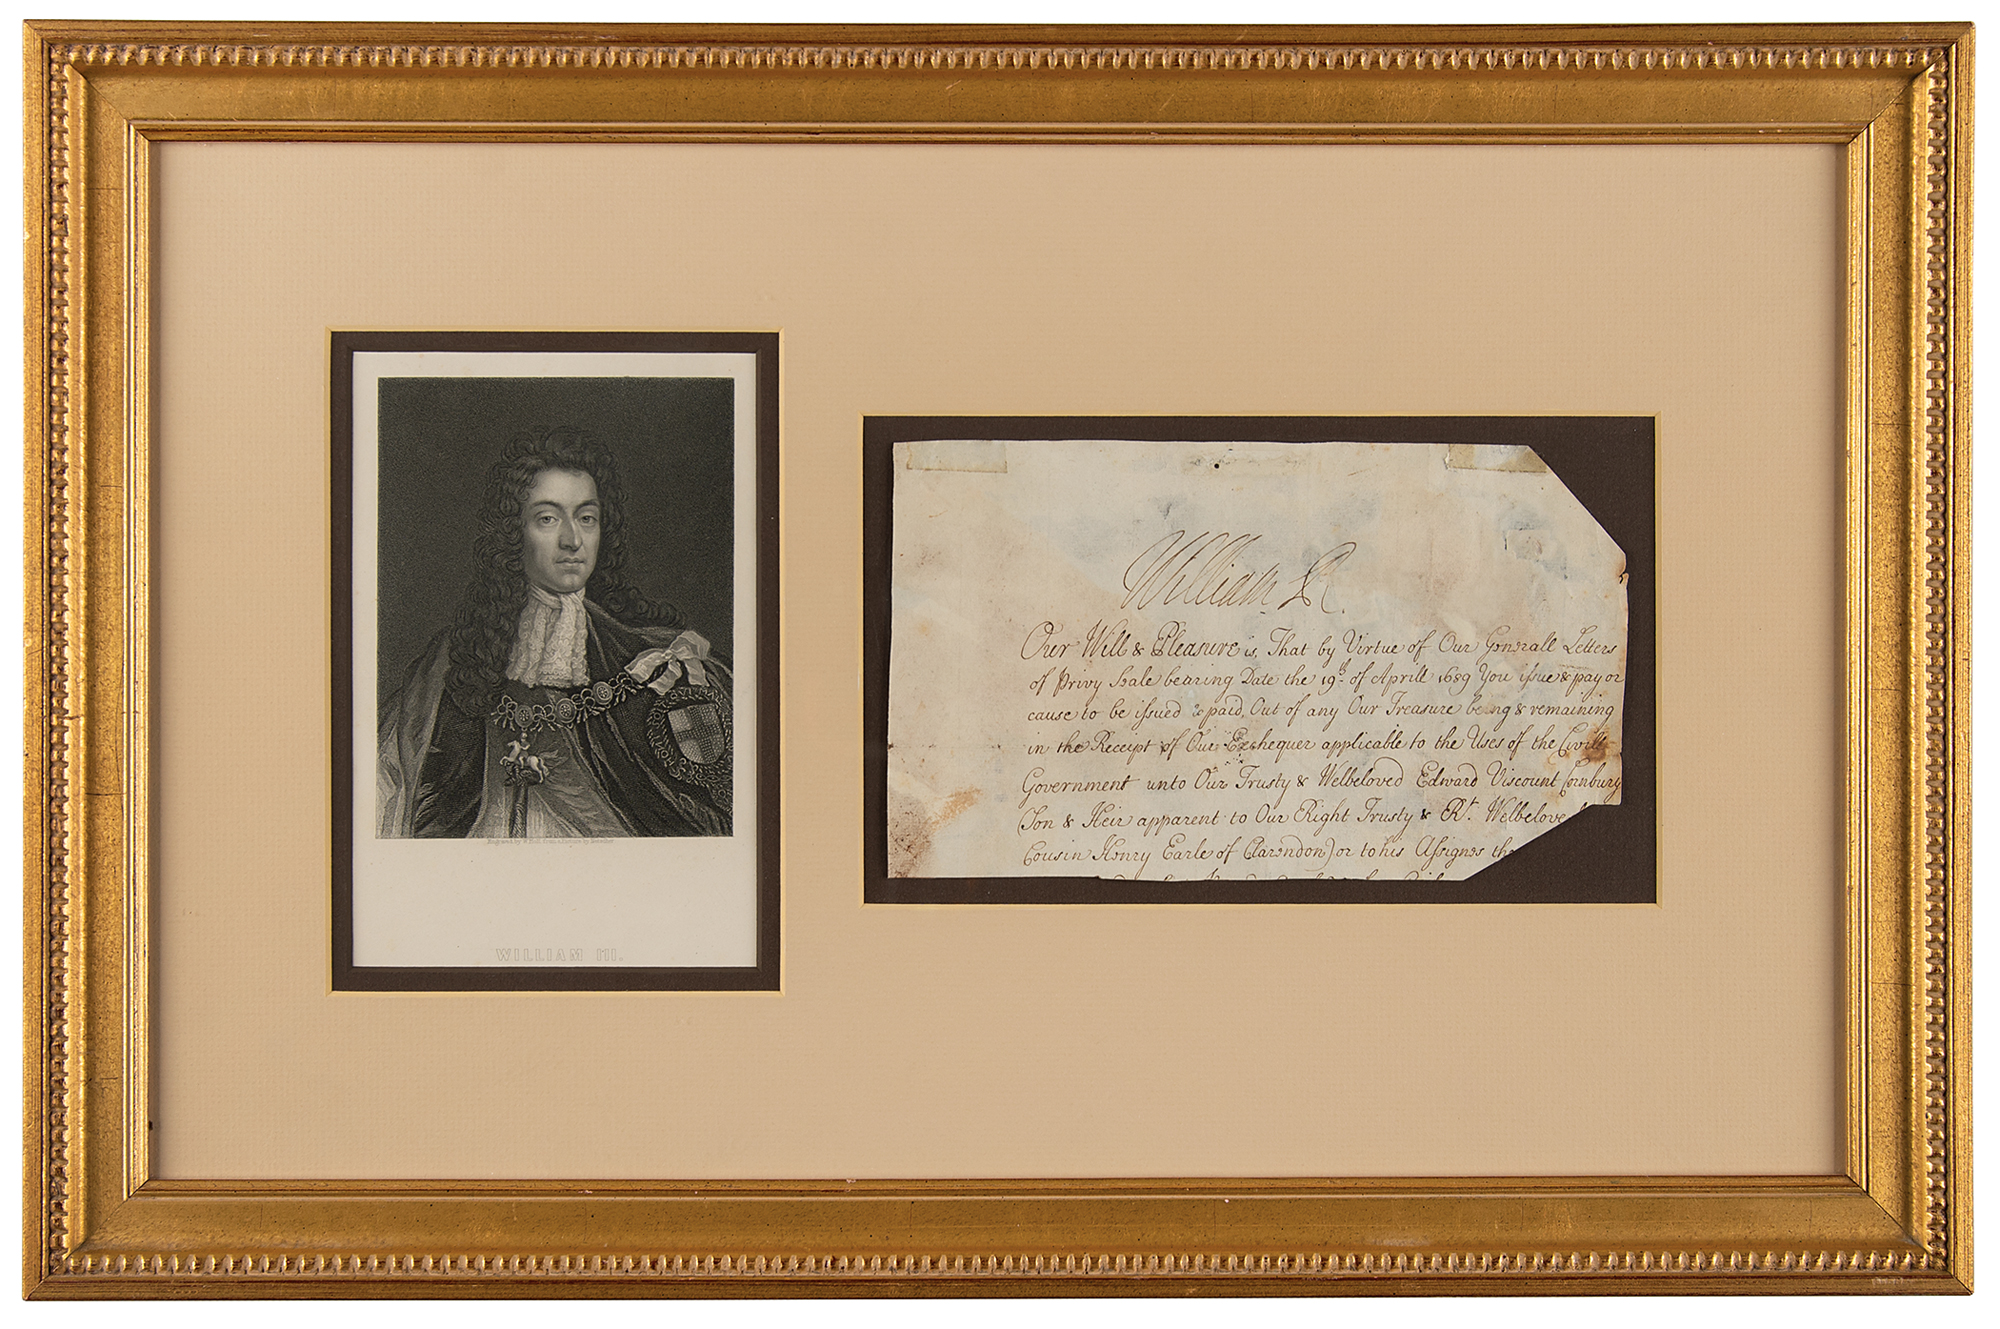 Engraved by W. Holl, from a Picture by Netscher.
WILLIAM III.
William R.
Our Will & Pleasure is, That by Virtue of Our Generall Letters
of Privy Seale bearing Date the 19th. of Aprill 1689 You issue & pay or
cause to be issued & paid, Out of any Our Treasure being & remaining
in the Receipt of Our Exchequer applicable to the Uses of the Civill
Government unto Our Trusty & Welbeloved Edward Viscount Cornbury
(Son & Heir apparent to Our Right Trusty & Rt. Welbelove
Cousin Henry Earle of Clarendon) or to his Assignes the